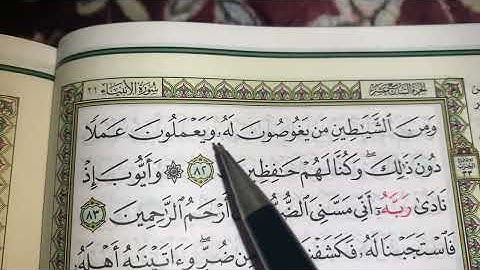 سورة الأنبياء ٢١
الجزء السابع عشر
وَمِنَ ٱلشَّيَٰطِينِ مَن يَغُوصُونَ لَهُۥ وَيَعۡمَلُونَ عَمَلٗا
دُونَ ذَٰلِكَۖ وَكُنَّا لَهُمۡ حَٰفِظِينَ ٨٢ ۞ وَأَيُّوبَ إِذۡ
نَادَىٰ رَبَّهُۥٓ أَنِّي مَسَّنِيَ ٱلضُّ أَرۡحَمُ ٱلرَّٰحِمِينَ ٨٣
فَٱسۡتَجَبۡنَا لَهُۥ فَكَشَفۡنَا مِن ضُرّٖۖ وَءَاتَيۡنَٰهُ أَهۡلَهُۥ